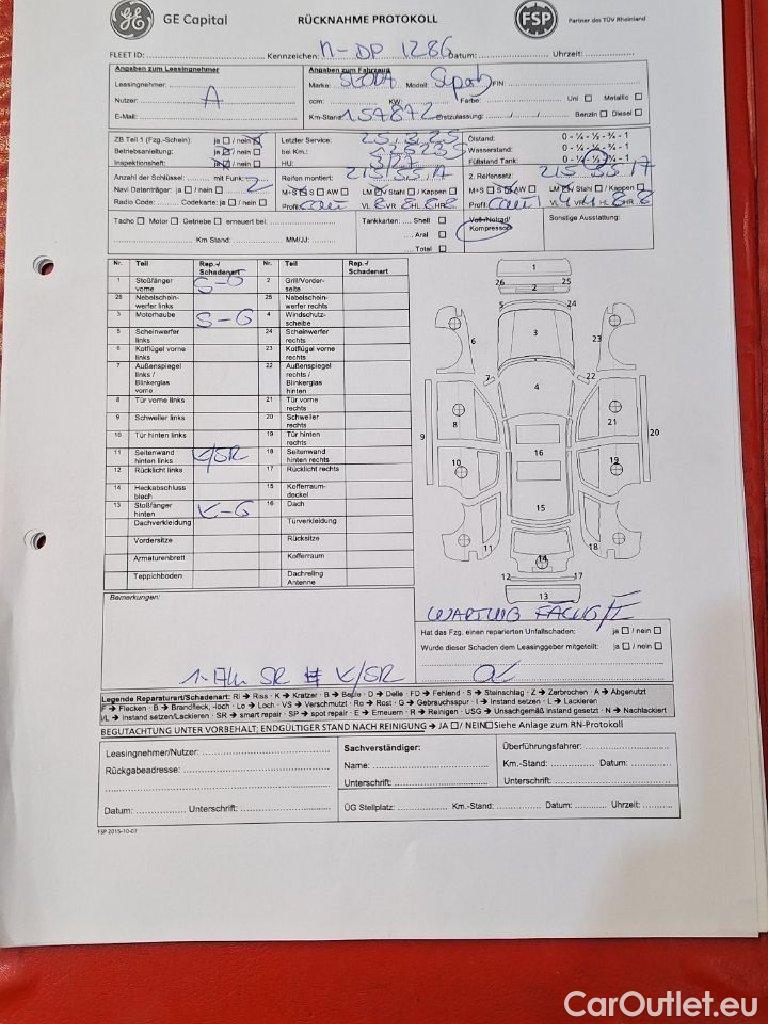 GE GE Capital RÜCKNAHME PROTOKOLL FSP Partner des TÜV Rheinland
FLEET ID: Kennzeichen: N-DP 1286 Datum: Uhrzeit:
Angaben zum Leasingnehmer Angaben zum Fahrzeug
Leasingnehmer: Marke: Skoda Modell: Superb FIN:
Nutzer: A ccm: KW: Farbe: Uni ☐ Metallic ☐
E-Mail: Km-Stand: 157872 Erstzulassung: / / Benzin ☐ Diesel ☐
ZB Teil 1 (Fzg.-Schein): ja ☐ / nein ☒ Letzter Service: 25.3.25 Ölstand: 0 - ¼ - ½ - ¾ - 1
Betriebsanleitung: ja ☒ / nein ☐ bei Km.: Wasserstand: 0 - ¼ - ½ - ¾ - 1
Inspektionsheft: ja ☒ / nein ☐ HU: 3/27 Füllstand Tank: 0 - ¼ - ½ - ¾ - 1
Anzahl der Schlüssel: mit Funk: 2 Reifen montiert: 215 55 17 2. Reifensatz: 215 55 17
Navi Datenträger: ja ☐ / nein ☐ M+S ☒ S ☐ AW ☐ LM ☒ / Stahl ☐ / Kappen ☐ M+S ☐ S ☒ AW ☐ LM ☒ / Stahl ☐ / Kappen ☐
Radio Code: Codekarte: ja ☐ / nein ☐ Profil: Conti VL 8 VR 8 HL 8 HR 8 Profil: Conti VL 4 VR 4 HL 8 HR 8
Tacho ☐ Motor ☐ Getriebe ☐ erneuert bei Tankkarten: Shell ☐ Voll-/Notrad/ Sonstige Ausstattung:
Kompressor
Aral ☐
Km Stand: MM/JJ: Total ☐
Nr. Teil Rep.-/ Schadenart Nr. Teil Rep.-/ Schadenart
1 Stoßfänger vorne S-G 2 Grill/Vorderseite
26 Nebelscheinwerfer links 25 Nebelscheinwerfer rechts
3 Motorhaube S-G 4 Windschutzscheibe
5 Scheinwerfer links 24 Scheinwerfer rechts
6 Kotflügel vorne links 23 Kotflügel vorne rechts
7 Außenspiegel links / Blinkerglas vorne 22 Außenspiegel rechts / Blinkerglas hinten
8 Tür vorne links 21 Tür vorne rechts
9 Schweller links 20 Schweller rechts
10 Tür hinten links 19 Tür hinten rechts
11 Seitenwand hinten links K/SR 18 Seitenwand hinten rechts
12 Rücklicht links 17 Rücklicht rechts
14 Heckabschluss blech 15 Kofferraum-deckel
13 Stoßfänger hinten K-G 16 Dach
Dachverkleidung Türverkleidung
Vordersitze Rücksitze
Armaturenbrett Kofferraum
Teppichboden Dachreling Antenne
1
26 25
2
5 24
3
6 23
7 22
4
8 21
9 20
16
10 19
15
11 18
14
12 17
13
Bemerkungen:
WARTUNG FÄLLIG/
Hat das Fzg. einen reparierten Unfallschaden: ja ☐ / nein ☐
Wurde dieser Schaden dem Leasinggeber mitgeteilt: ja ☐ / nein ☐
SR K/SR
Legende Reparaturart/Schadenart: RI → Riss · K → Kratzer · B → Beule · D → Delle · FD → Fehlend · S → Steinschlag · Z → Zerbrochen · A → Abgenutzt
F → Flecken · B → Brandfleck, -loch · Lo → Loch · VS → Verschmutzt · Ro → Rost · G → Gebrauchsspur · I → Instand setzen · L → Lackieren
I/L → Instand setzen/Lackieren · SR → smart repair · SP → spot repair · E → Erneuern · R → Reinigen · USG → Unsachgemäß instand gesetzt · N → Nachlackiert
BEGUTACHTUNG UNTER VORBEHALT; ENDGÜLTIGER STAND NACH REINIGUNG → JA ☐ / NEIN ☐ Siehe Anlage zum RN-Protokoll
Leasingnehmer/Nutzer: Sachverständiger: Überführungsfahrer:
Rückgabeadresse: Name: Km.-Stand: Datum:
Unterschrift: Unterschrift:
Datum: Unterschrift: ÜG Stellplatz: Km.-Stand: Datum: Uhrzeit:
FSP 2015-10-03
CarOutlet.eu